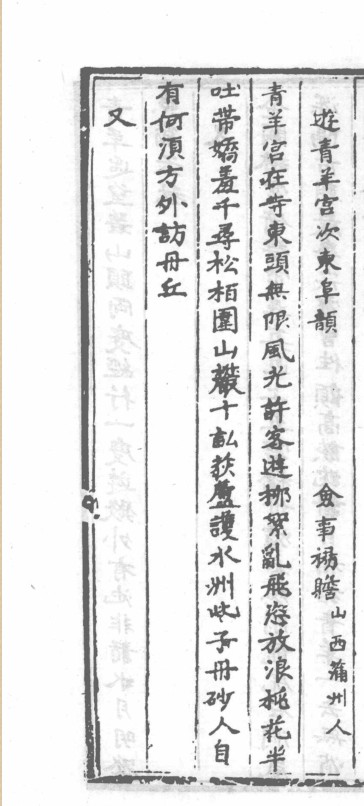 遊青羊宮次東阜韻 僉事楊瞻山西蒲州人
青羊宮在寺東頭無限風光許客遊柳絮亂飛恣放浪桃花半
吐帶嬌羞千尋松栢圍山巖十畝荻蘆護水洲此子丹砂人自
有何須方外訪丹丘
又